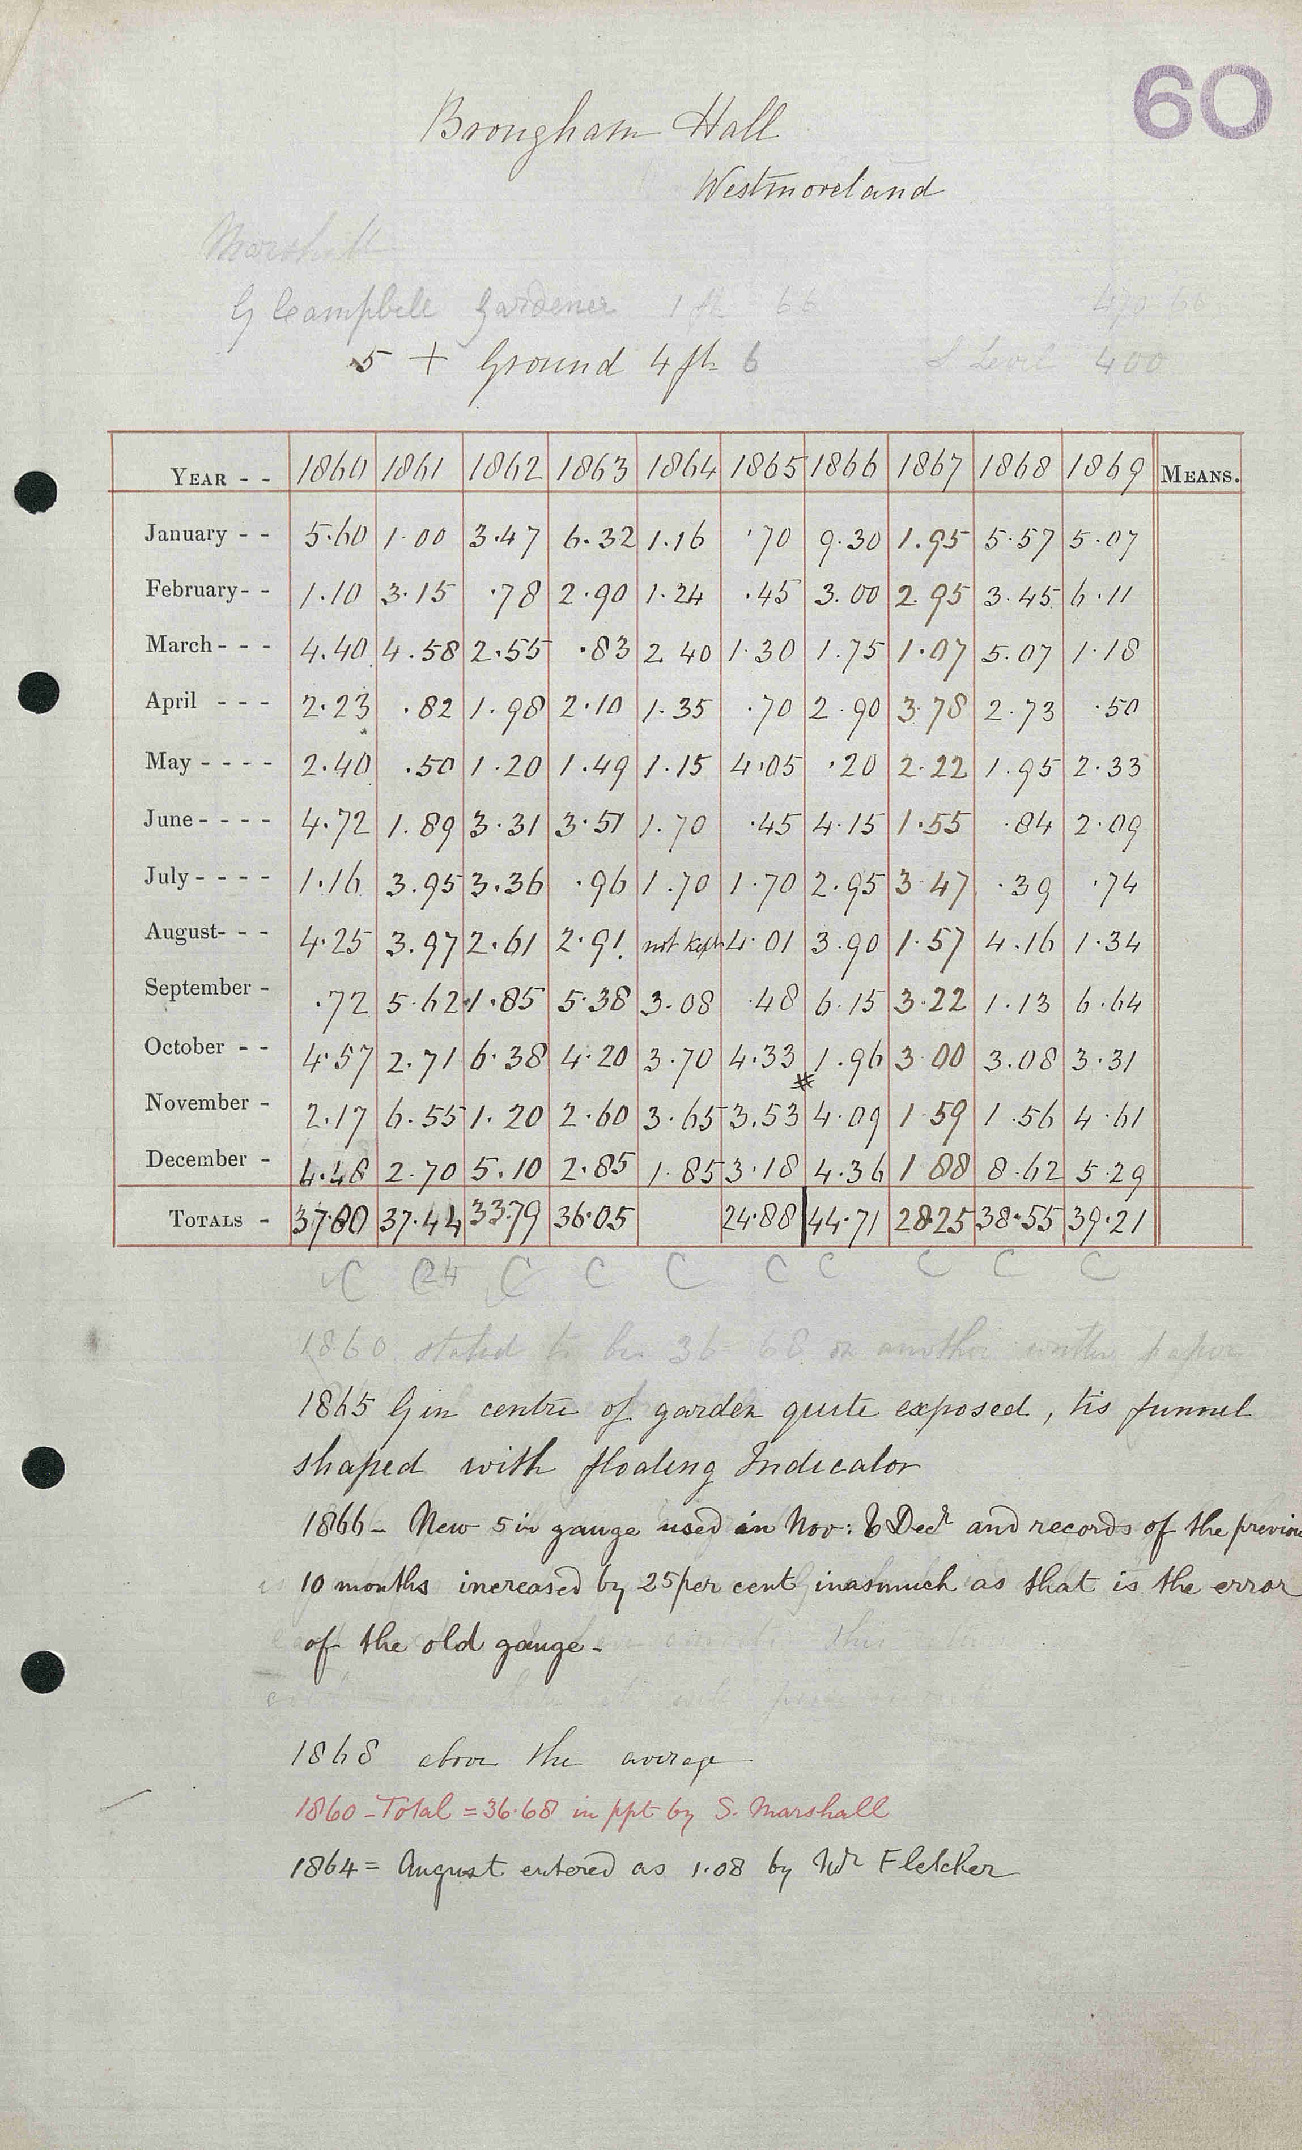 60
Brougham Hall
Westmoreland
Marshall
G Campbell Gardener 1 ft 66
5 + Ground 4 ft 6 S Level 400
YEAR - - 1860 1861 1862 1863 1864 1865 1866 1867 1868 1869 MEANS.
January - - 5.60 1.00 3.47 6.32 1.16 .70 9.30 1.95 5.57 5.07
February - - 1.10 3.15 .78 2.90 1.24 .45 3.00 2.95 3.45 6.11
March - - - 4.40 4.58 2.55 .83 2.40 1.30 1.75 1.07 5.07 1.18
April - - - 2.23 .82 1.98 2.10 1.35 .70 2.90 3.78 2.73 .50
May - - - - 2.40 .50 1.20 1.49 1.15 4.05 .20 2.22 1.95 2.33
June - - - - 4.72 1.89 3.31 3.51 1.70 .45 4.15 1.55 .84 2.09
July - - - - 1.16 3.95 3.36 .96 1.70 1.70 2.95 3.47 .39 .74
August - - - 4.25 3.97 2.61 2.91 not kept 4.01 3.90 1.57 4.16 1.34
September - .72 5.62 1.85 5.38 3.08 .48 6.15 3.22 1.13 6.64
October - - 4.57 2.71 6.38 4.20 3.70 4.33 1.96 3.00 3.08 3.31
November - 2.17 6.55 1.20 2.60 3.65 3.53 4.09 1.59 1.56 4.61
December - 4.48 2.70 5.10 2.85 1.85 3.18 4.36 1.88 8.62 5.29
TOTALS - 37.80 37.44 33.79 36.05 24.88 44.71 28.25 38.55 39.21
C C 24 C C C C C C C C
1860 stated to be 36.68 on another written paper
1865 G in centre of garden quite exposed, tis funnel
shaped with floating Indicator
1866 - New 5 in gauge used in Nov: & Decr and records of the previous
10 months increased by 25 per cent inasmuch as that is the error
of the old gauge -
1868 above the average
1860 - Total = 36.68 in ppt by S. Marshall
1864 = August entered as 1.08 by Mr Fletcher